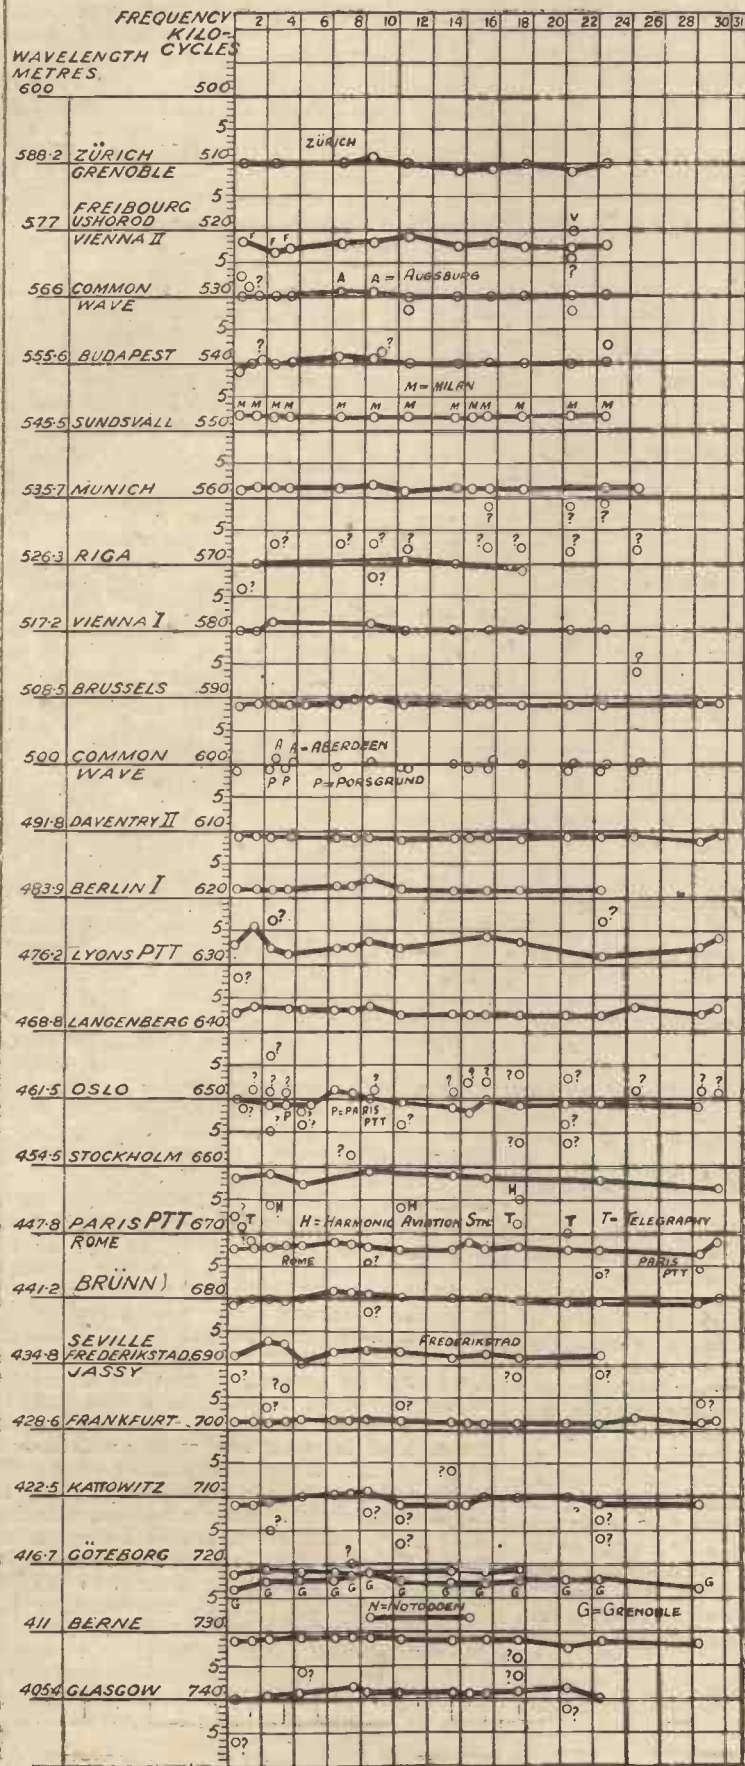 FREQUENCY KILO-CYCLES 2 4 6 8 10 12 14 16 18 20 22 24 26 28 30 31
WAVELENGTH METRES
600 500
5
ZÜRICH
588.2 ZÜRICH GRENOBLE 510
5
577 FREIBOURG USHOROD VIENNA II 520
V
F F F
5
?
? A A = AUGSBURG
566 COMMON WAVE 530
5
? ?
555.6 BUDAPEST 540
M = MILAN
5
M M M M M M M M M M M M M
545.5 SUNDSVALL 550
5
535.7 MUNICH 560
? ? ?
5
? ? ? ? ? ? ? ?
526.3 RIGA 570
? ?
5
517.2 VIENNA I 580
5
?
508.5 BRUSSELS 590
5
A A = ABERDEEN
500 COMMON WAVE 600
P P P = PORSGRUND
5
491.8 DAVENTRY II 610
5
483.9 BERLIN I 620
5
? ?
476.2 LYONS PTT 630
?
5
468.8 LANGENBERG 640
?
5
? ? ? ? ? ? ? ? ? ? ? ?
461.5 OSLO 650
? P P = PARIS PTT
? ? ? ?
5
? ? ?
454.5 STOCKHOLM 660
5
H
? H H
447.8 PARIS PTT ROME 670
T H = HARMONIC AVIATION STN. T T T = TELEGRAPHY
ROME ? PARIS PTT
5
?
441.2 BRÜNN 680
?
5
FREDERIKSTAD
434.8 SEVILLE FREDERIKSTAD JASSY 690
? ? ? ?
5
? ? ?
428.6 FRANKFURT 700
5
?
422.5 KATTOWITZ 710
? ? ? ?
5
? ? ?
416.7 GÖTEBORG 720
?
5
G G G G G G G G G G G G
N = NOTODDEN G = GRENOBLE
411 BERNE 730
?
5
? ?
405.4 GLASGOW 740
?
5
?